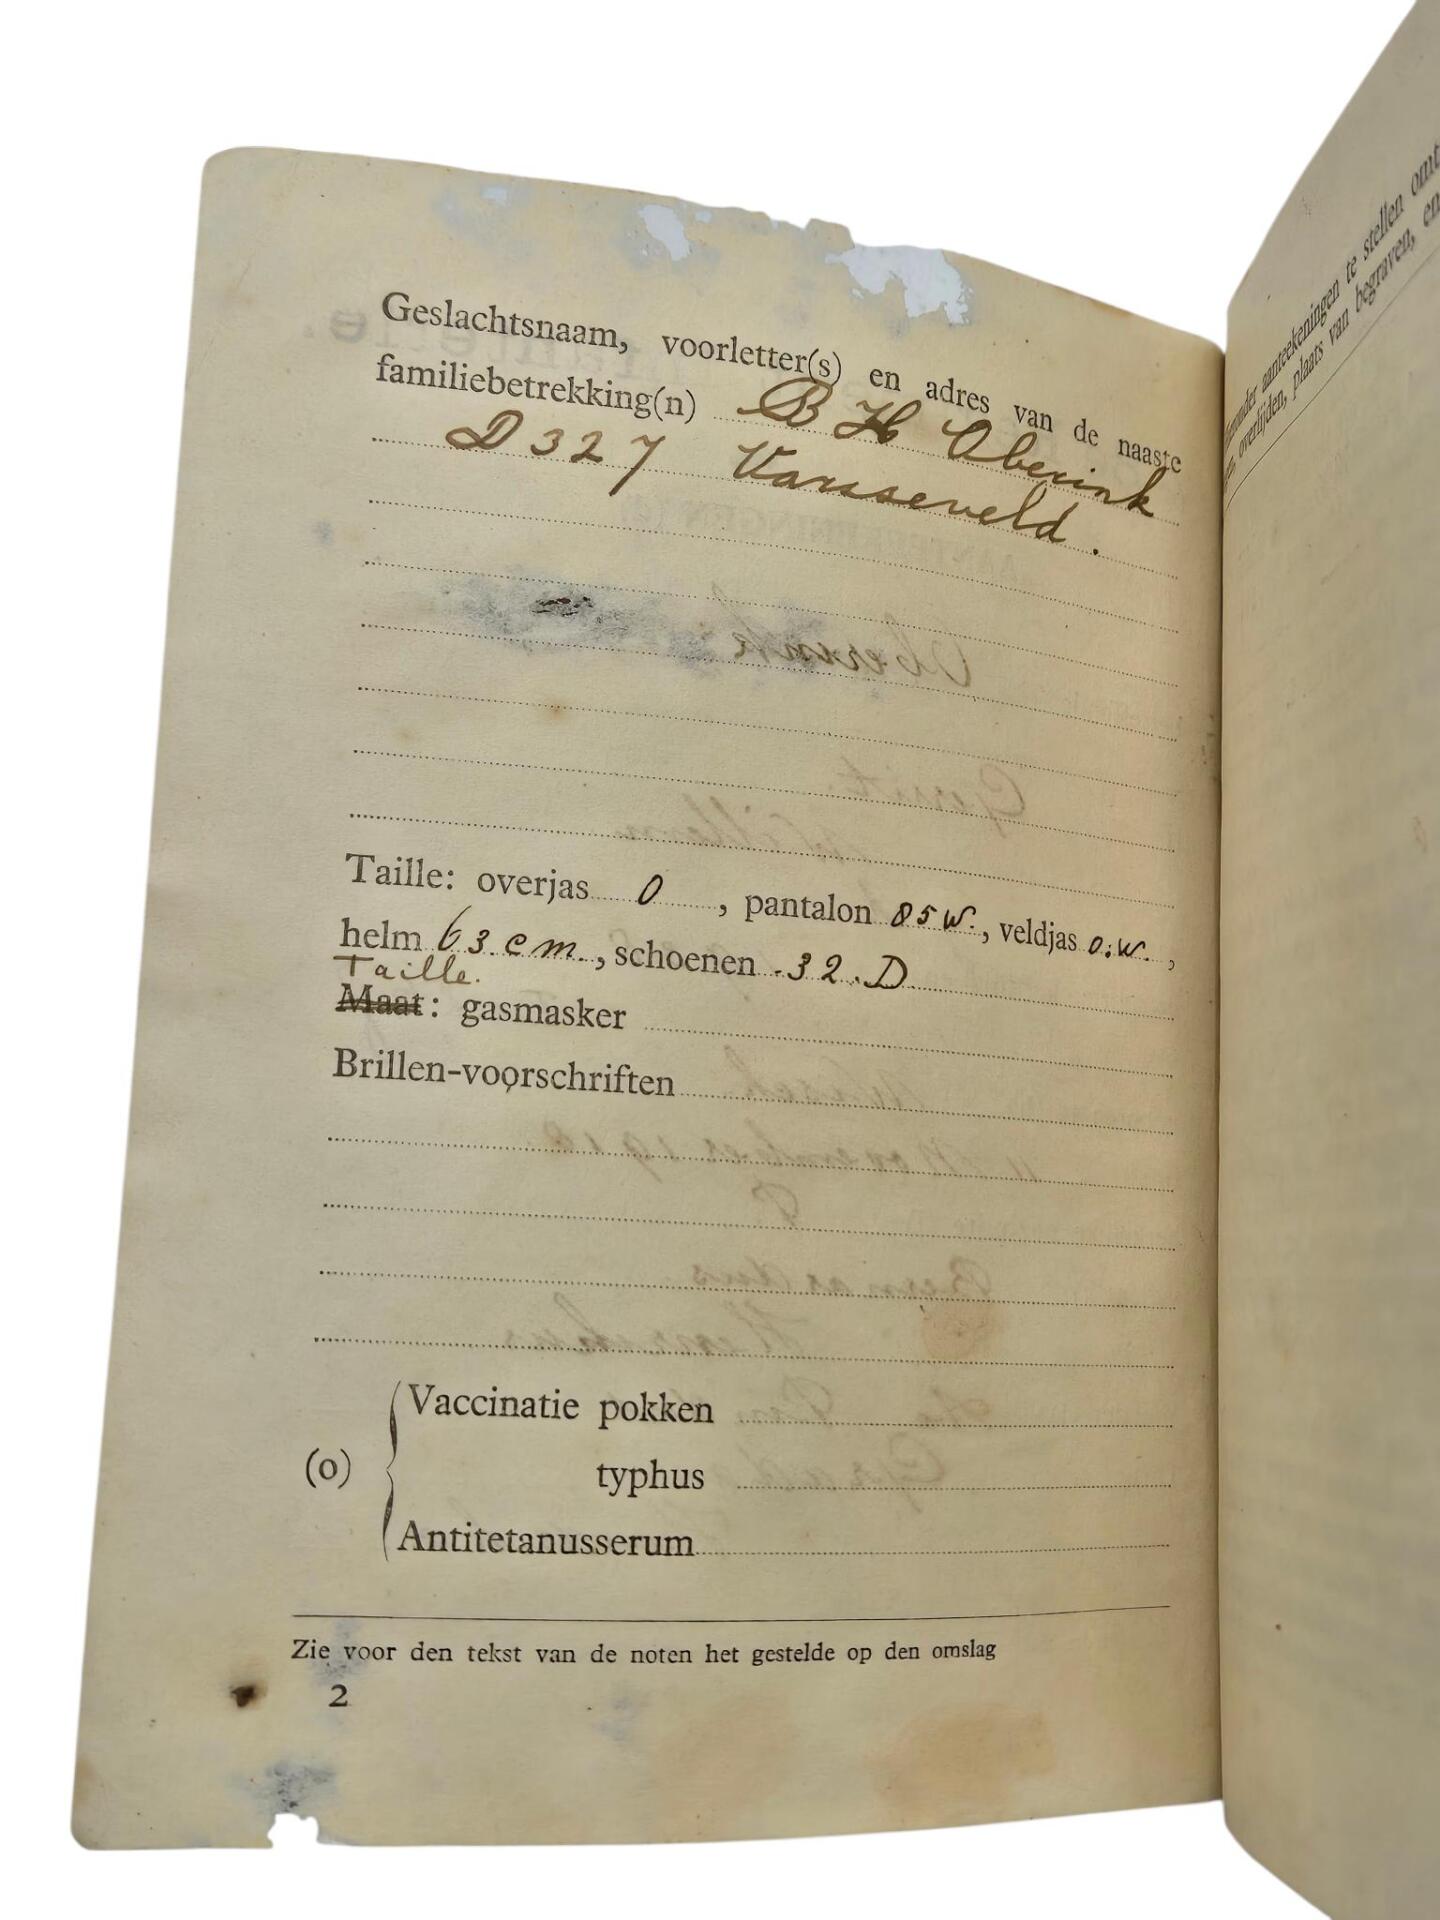 Geslachtsnaam, voorletter(s) en adres van de naaste
familiebetrekking(n) B H Oberink
D 327 Varsseveld.
Taille: overjas 0, pantalon 85 W., veldjas 0.W.,
helm 63 cm., schoenen 32 D
Taille.
Maat: gasmasker
Brillen-voorschriften
Vaccinatie pokken
(o) typhus
Antitetanusserum
Zie voor den tekst van de noten het gestelde op den omslag
2
aanteekeningen te stellen
overlijden, plaats van begraven, en